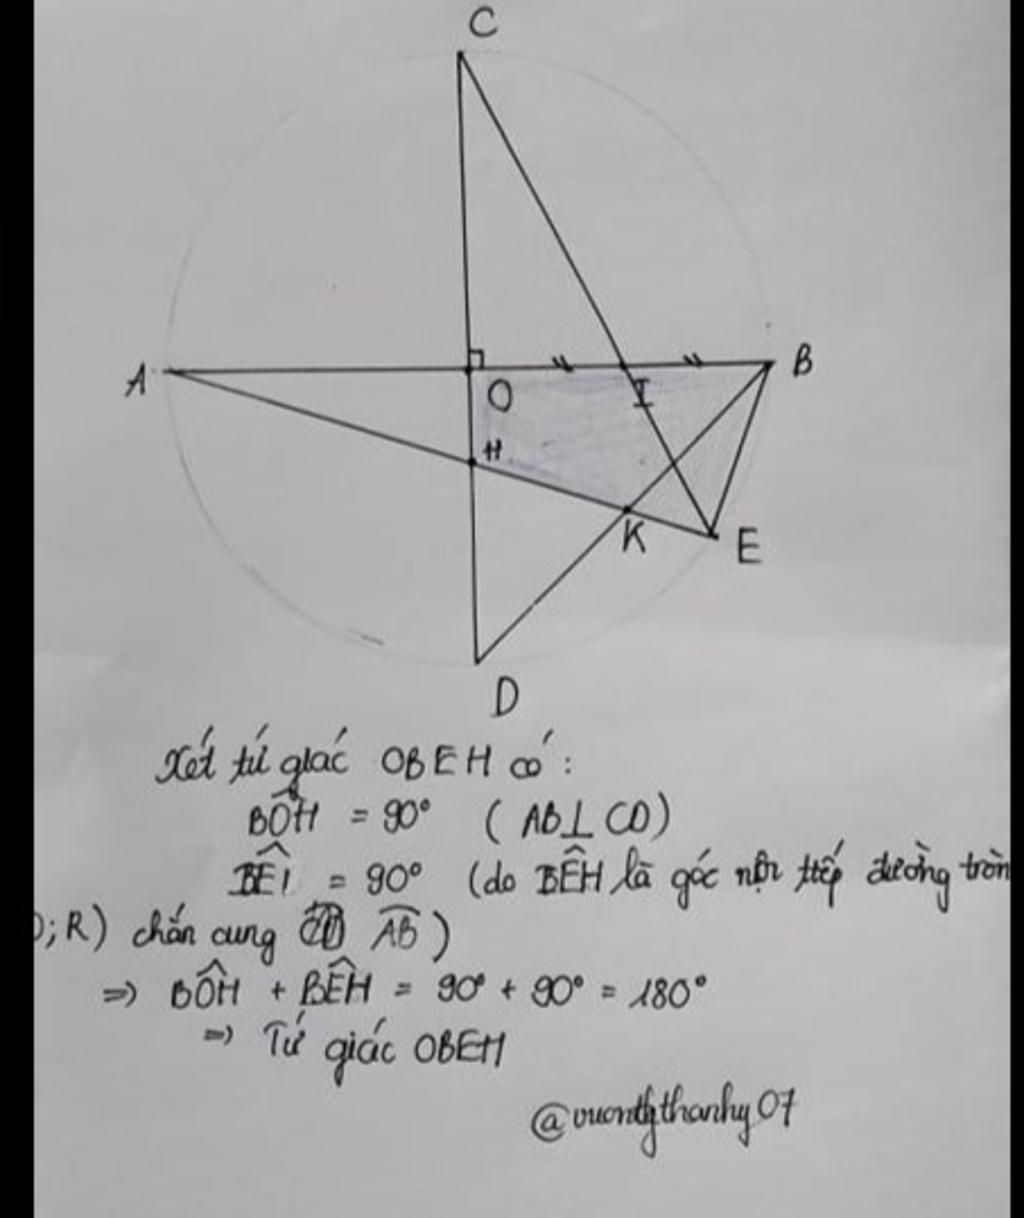 C
A
B
O
I
H
K
E
D
Xét tứ giác OBEH có:
BÔH = 90° (AB⊥CD)
BÊI = 90° (do BÊH là góc nội tiếp đường tròn
;R) chắn cung AB)
=> BÔH + BÊH = 90° + 90° = 180°
=> Tứ giác OBEH